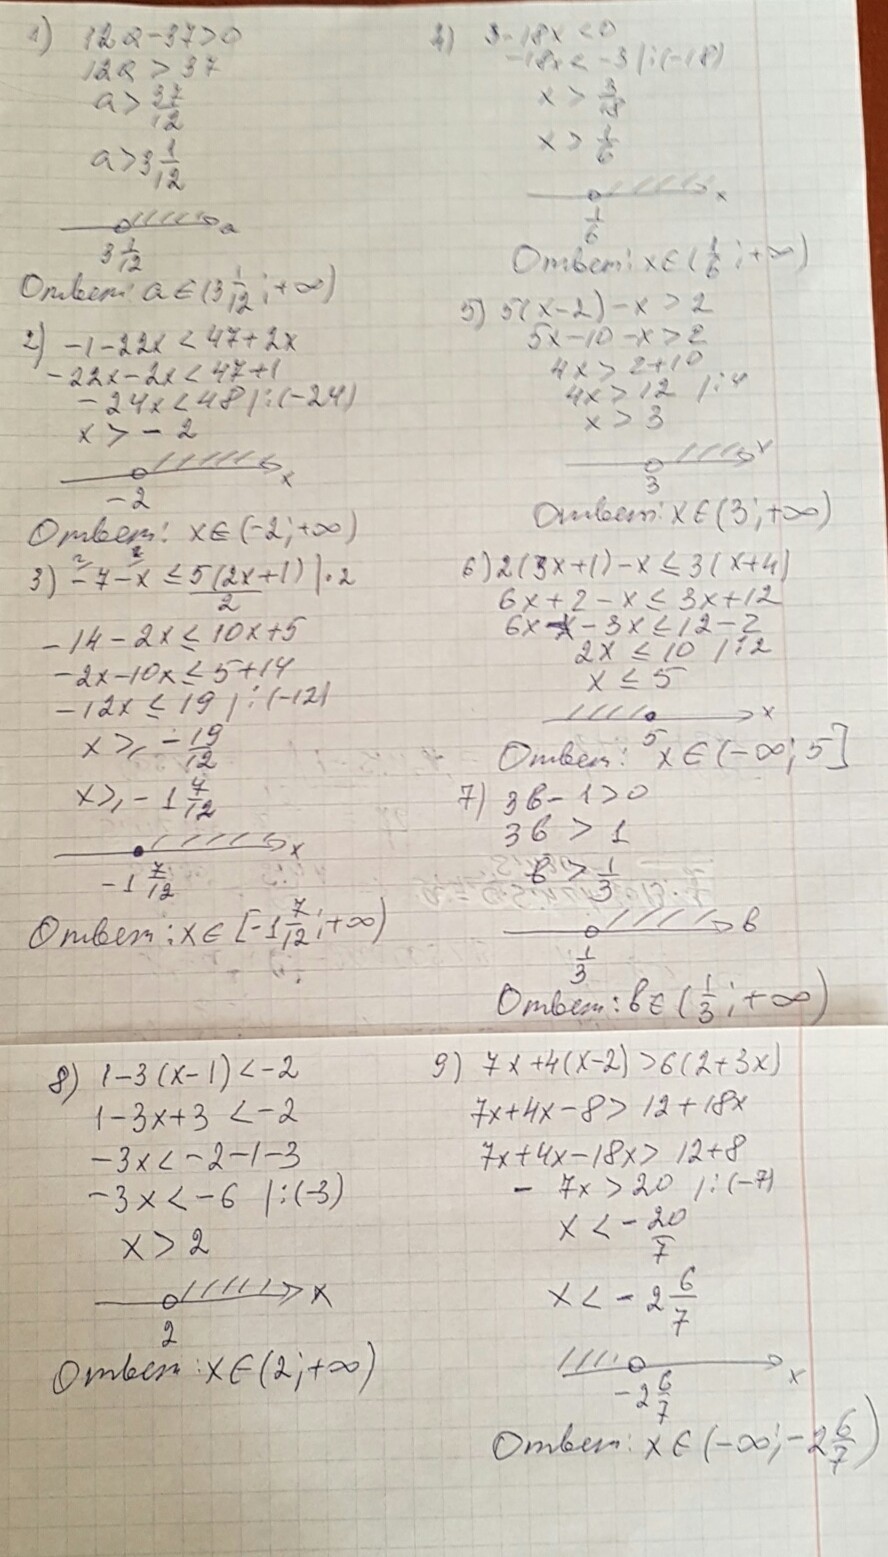 1) 12a-37>0
12a > 37
a > 37/12
a > 3 1/12
a
3 1/12
Ответ: a ∈ (3 1/12; +∞)
2) -1-22x < 47+2x
-22x-2x < 47+1
-24x < 48 |:(-24)
x > -2
x
-2
Ответ: x ∈ (-2; +∞)
2 2
3) -7-x ≤ 5(2x+1)/2 |·2
-14-2x ≤ 10x+5
-2x-10x ≤ 5+14
-12x ≤ 19 |:(-12)
x ≥ -19/12
x ≥ -1 7/12
x
-1 7/12
Ответ: x ∈ [-1 7/12; +∞)
4) 3-18x < 0
-18x < -3 |:(-18)
x > 3/18
x > 1/6
x
1/6
Ответ: x ∈ (1/6; +∞)
5) 5(x-2)-x > 2
5x-10-x > 2
4x > 2+10
4x > 12 |:4
x > 3
x
3
Ответ: x ∈ (3; +∞)
6) 2(3x+1)-x ≤ 3(x+4)
6x+2-x ≤ 3x+12
6x-x-3x ≤ 12-2
2x ≤ 10 |:2
x ≤ 5
x
5
Ответ: x ∈ (-∞; 5]
7) 3b-1>0
3b > 1
b > 1/3
b
1/3
Ответ: b ∈ (1/3; +∞)
8) 1-3(x-1) < -2
1-3x+3 < -2
-3x < -2-1-3
-3x < -6 |:(-3)
x > 2
x
2
Ответ: x ∈ (2; +∞)
9) 7x+4(x-2) > 6(2+3x)
7x+4x-8 > 12+18x
7x+4x-18x > 12+8
-7x > 20 |:(-7)
x < -20/7
x < -2 6/7
x
-2 6/7
Ответ: x ∈ (-∞; -2 6/7)